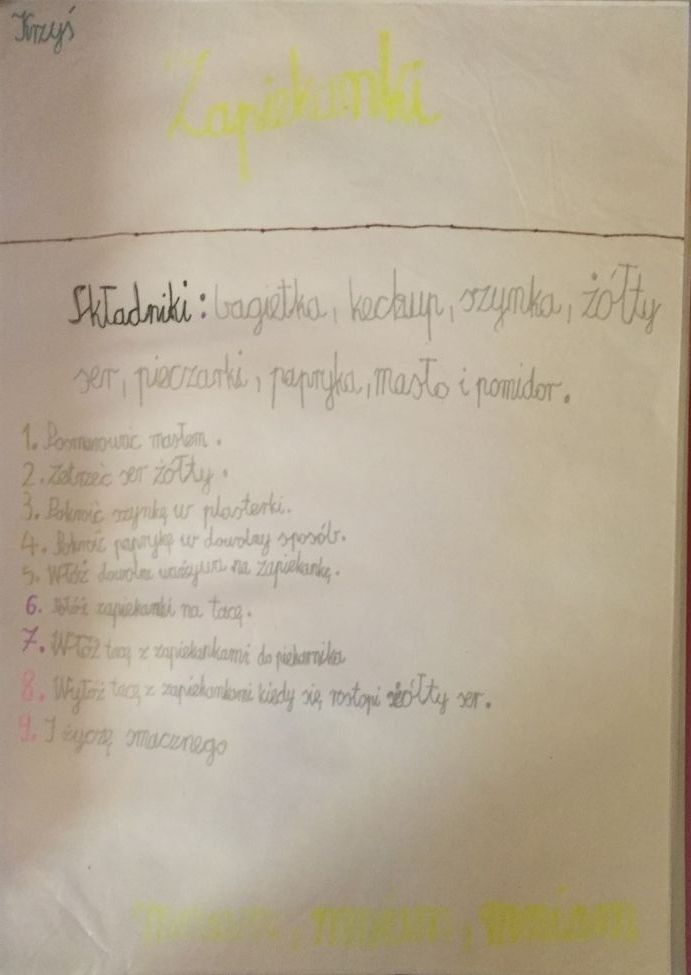 Krzyś
Zapiekanki
Składniki: bagietka, keckup, szynka, żółty
ser, pieczarki, papryka, masło i pomidor.
1. Posmarować masłem.
2. Zetrzeć ser żółty.
3. Pokroić szynkę w plasterki.
4. Pokroić paprykę w dowolny sposób.
5. Włóż dowolne warzywa na zapiekankę.
6. zapiekanki na tacę.
7. Włóż tacę z zapiekankami do piekarnika
8. Wyłóż tacę z zapiekankami kiedy się rostopi żółty ser.
9. I życzę smacznego
mniam, mniam, mniam